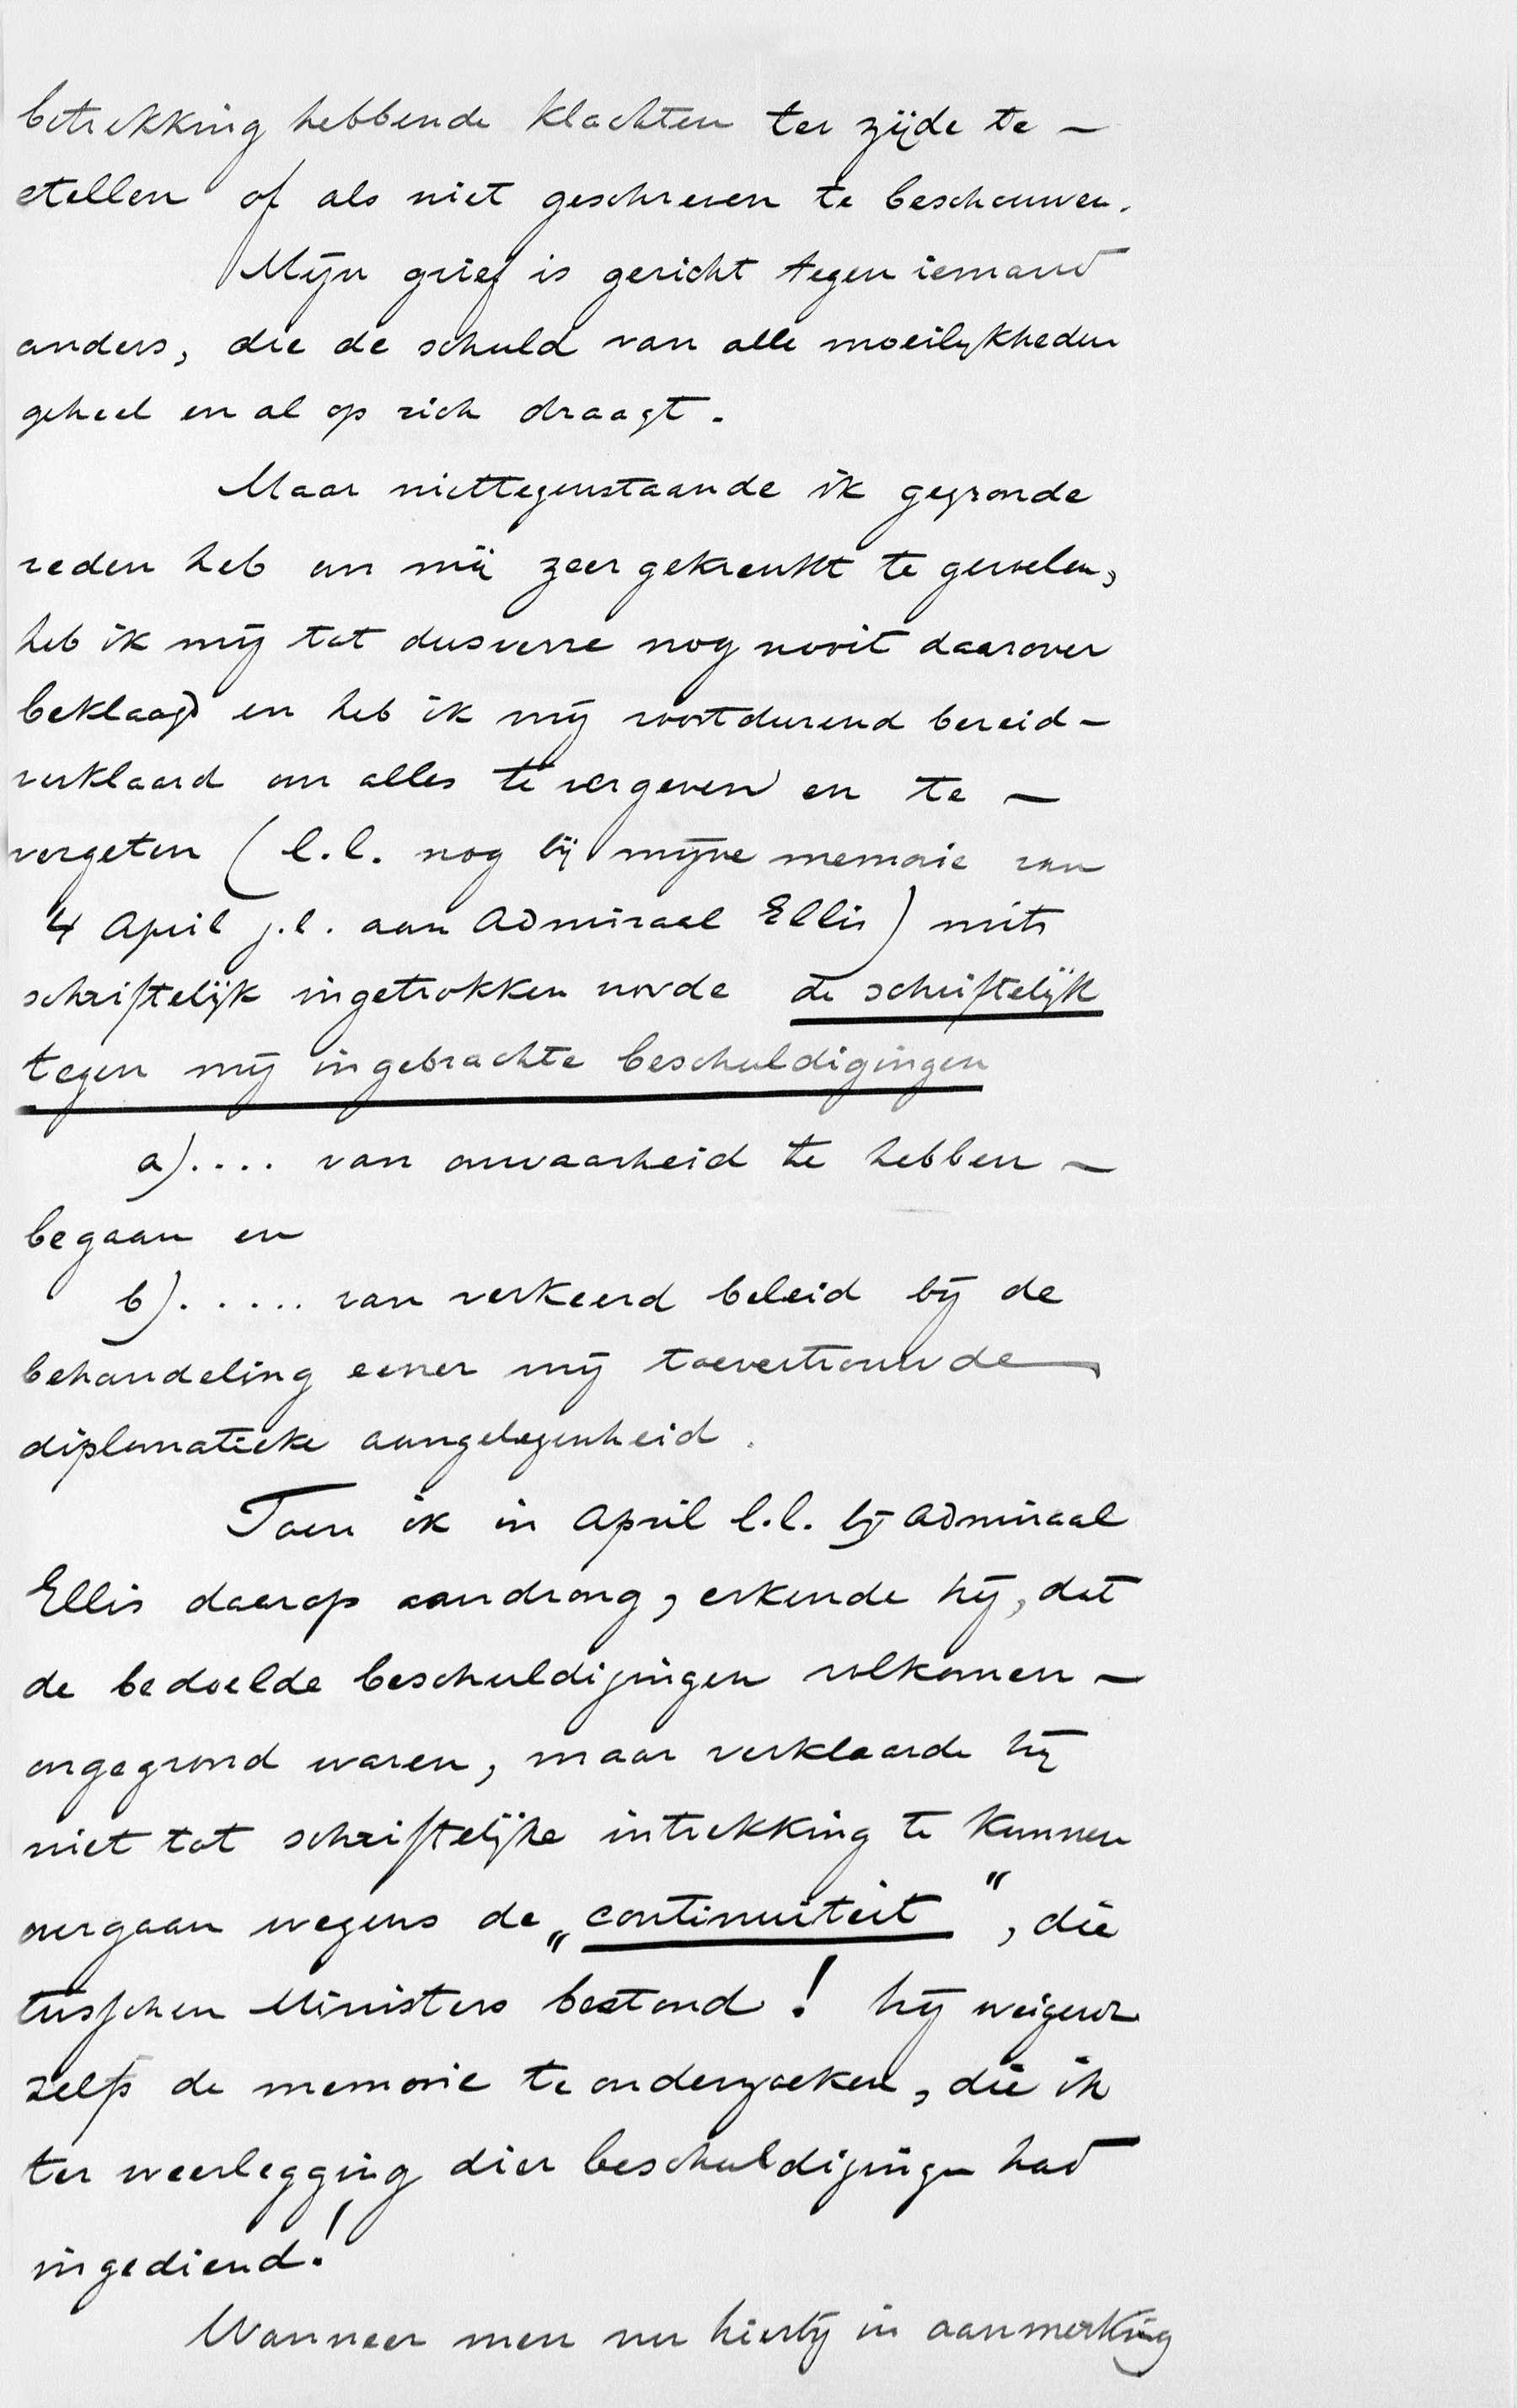 betrekking hebbende klachten ter zijde te –
stellen of als niet geschreven te beschouwen.
Mijn grief is gericht tegen iemand
anders, die de schuld van alle moeilijkheden
geheel en al op zich draagt.
Maar niettegenstaande ik gegronde
reden heb om mij zeer gekrenkt te gevoelen,
heb ik mij tot dusverre nog nooit daarover
beklaagd en heb ik mij voortdurend bereid –
verklaard om alles te vergeven en te –
vergeten (l.l. nog bij mijne memorie van
4 April j.l. aan Admiraal Ellis) mits
schriftelijk ingetrokken worde de schriftelijk
tegen mij ingebrachte beschuldigingen
a).... van onwaarheid te hebben –
begaan en
b)..... van verkeerd beleid bij de
behandeling eener mij toevertrouwde
diplomatieke aangelegenheid.
Toen ik in April l.l. bij Admiraal
Ellis daarop aandrong, erkende hij, dat
de bedoelde beschuldigingen volkomen –
ongegrond waren, maar verklaarde hij
niet tot schriftelijke intrekking te kunnen
overgaan wegens de „continuiteit", die
tusschen Ministers bestond! hij weigerde
zelfs de memorie te onderzoeken, die ik
ter weerlegging dier beschuldigingen had
ingediend!
Wanneer men nu hierbij in aanmerking